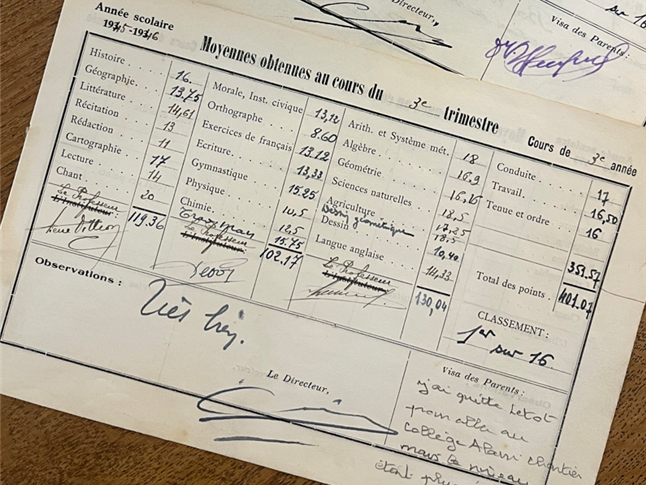 Directeur,
sur 16
Visa des Parents:
Année scolaire
1945-1946
Moyennes obtenues au cours du 3e trimestre
Cours de 3e année
Histoire 16
Géographie 13,75
Littérature 14,61
Récitation 13
Rédaction 11
Cartographie
Lecture 17
Chant 14
20
Le Professeur
L'Instituteur:
119,36
Morale, Inst. civique 13,12
Orthographe 8.60
Exercices de français 13.12
Ecriture 13,33
Gymnastique
Physique 15.25
Chimie 14,5
12,5
15.75
Le Professeur
L'Instituteur:
102,17
Arith. et Système mét. 18
Algèbre 16,9
Géométrie 16,16
Sciences naturelles
Agriculture 18,5
Dessin géométrique 17,25
Dessin 18,5
10,40
Langue anglaise 14,33
Le Professeur
L'Instituteur:
130,04
Conduite 17
Travail 16,50
Tenue et ordre 16
351.57
Total des points 401.07
CLASSEMENT:
1er sur 16
Observations:
Très bien.
Le Directeur,
Visa des Parents:
j'ai quitté Letot
pour aller au
collège Alain chartier
mais le niveau
étant plus